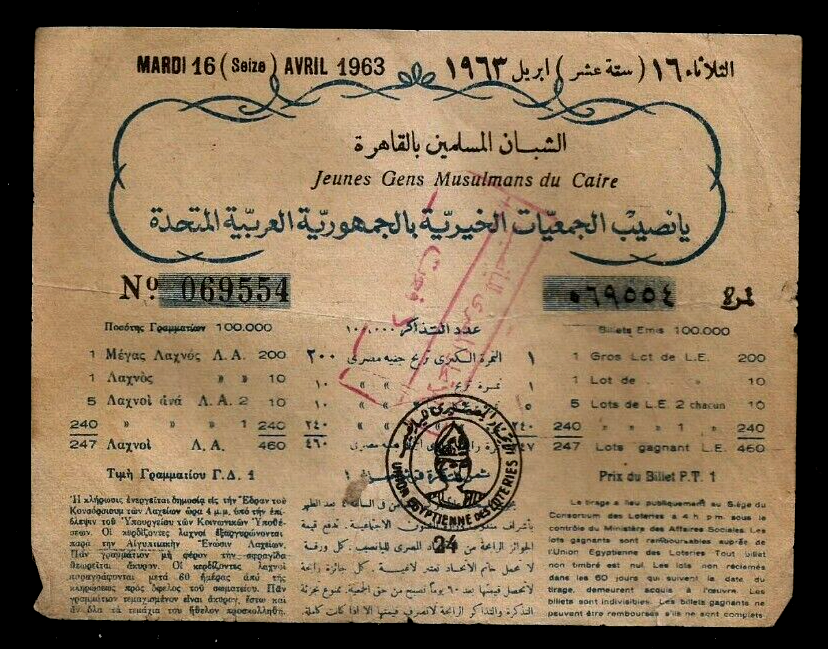 MARDI 16 (Seize) AVRIL 1963
الثلاثاء ١٦ (ستة عشر) ابريل ١٩٦٣
الشبان المسلمين بالقاهرة
Jeunes Gens Musulmans du Caire
يانصيب الجمعيات الخيرية بالجمهورية العربية المتحدة
Nº 069554
نمرة ٠٦٩٥٥٤
Ποσότης Γραμματίων 100.000
1 Μέγας Λαχνός Λ.Α. 200
1 Λαχνὸς » » 10
5 Λαχνοὶ ἀνά Λ.Α. 2 10
240 » » » 1 240
247 Λαχνοί Λ.Α. 460
Τιμὴ Γραμματίου Γ.Δ. 1
Ἡ κλήρωσις ἐνεργεῖται δημοσίᾳ εἰς τὴν Ἕδραν τοῦ
Κονσόρσιουμ τῶν Λαχείων ὥρα 4 μ.μ. ὑπὸ τὴν ἐπί-
βλεψιν τοῦ Ὑπουργείου τῶν Κοινωνικῶν Ὑποθέ-
σεων. Οἱ κερδίζοντες λαχνοὶ ἐξαργυρώνονται
παρὰ τὴν Αἰγυπτιακὴν Ἕνωσιν Λαχείων.
Πᾶν γραμμάτιον μὴ φέρον τὴν σφραγῖδα
θεωρεῖται ἄκυρον. Οἱ κερδίζοντες λαχνοὶ
παραγράφονται μετὰ 60 ἡμέρας ἀπὸ τῆς
κληρώσεως πρὸς ὄφελος τοῦ σωματείου. Πᾶν
γραμμάτιον τεμαχισμένον εἶναι ἄκυρον, ἔστω καὶ
ἂν ὅλα τὰ τεμάχια του ἤθελον προσκολληθῆ.
عدد التذاكر ١٠٠.٠٠٠
١ النمرة الكبرى تربح جنيه مصرى ٢٠٠
١ نمرة تربح » » ١٠
٥ » » ١٠
٢٤٠ » » ٢٤٠
٢٤٧ نمرة ٤٦٠
UNION EGYPTIENNE DES LOTERIES
24
الجوائز الرابحة من
المصرى لليانصيب. كل ورقة
لا تحمل ختم الاتحاد تعتبر لاغية. كل جائزة رابحة
لا تحصل قيمتها بعد ٦٠ يوما تصبح من حق الجمعية. ممنوع تجزئة
التذكرة والتذاكر الرابحة لا تصرف قيمتها الا اذا كانت كاملة.
Billets Emis 100.000
1 Gros Lot de L.E. 200
1 Lot de » » 10
5 Lots de L.E. 2 chacun 10
240 » » » 1 » 240
247 Lots gagnant L.E. 460
Prix du Billet P.T. 1
Le tirage a lieu publiquement au Siège du
Consortium des Loteries a 4 h. p.m. sous le
contrôle du Ministère des Affaires Sociales. Les
lots gagnants sont remboursables suprée de
l'Union Egyptienne des Loteries Tout billet
non timbré est nul. Les lots non réclamés
dans les 60 jours qui suivent la date du
tirage, demeurent acquis a l'œuvre. Les
billets sont indivisibles. Les billets gagnants ne
peuvent être remboursés s'ils ne sont complets